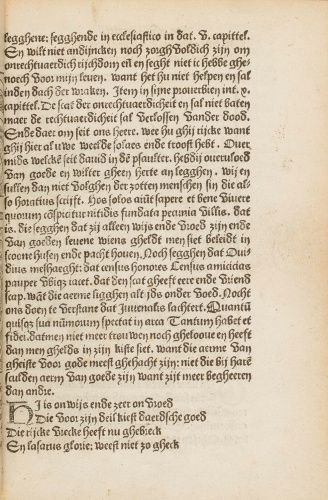 legghene: segghende in ecclesiastico in dat. v. capittel.
En wilt niet andijncken noch zorghvoldich zijn om
onrechtuaerdich rijchdom en̄ en seght niet ic hebbe ghe-
noech voor mijn leuen. want het hu niet helpen en sal
inden dach der wraken. Item in sijne prouerbien int. x.
capittel. De scat der onrechtuaerdicheit en sal niet baten
maer de rechtuaerdicheit sal verlossen vander dood.
Ende daer om seit ons heere. wee hu ghij rijcke want
ghij hier al uwe weelde solaes ende troost hebt. Ouer
mids welckē seit dauid in dē psaulter. hebdij oueruloed
van goede en wilter gheen herte an legghen. wij en
sullen dan niet volghen der zotten menschen sin die al-
so horatius scrijft. Hos solos aiūt sapere et bene viuere
quorum cōspicitur nitidis fundata pecunia villis. dat
is. die segghen dat zij alleen wijs ende vroed zijn ende
van goeden leuene wiens gheldt men siet beleidt in
scoone husen ende pacht houen. Noch segghen dat Oui-
dius meshaeght: dat census honores Census amicicias
pauper vbiqz iacet. dat den scat gheeft eere ende vriend
scap. wāt die aermeligghen alt ijds onder voed. Nocht
ons doen te verstane dat Iuuenalis lachtert. Quantū
quisqz sua nūmorum spectat in arca Tantum habet et
fidei. datmen niet meer trauwen noch ghelooue en heeft
dan men ghelds in zijn kiste siet. want die aerme van
gheiste voor gode meest ghehacht zijn: niet die bij harē
sculden aerm van goede zijn want zijt meer begheeren
dan andre.
Hi is on wijs ende zeer on vroed
Die voor zijn deil kiest daerdsche goed
Die rijcke vrecke heeft nu ghebreck
En lasarus glorie: weest niet zo gheck